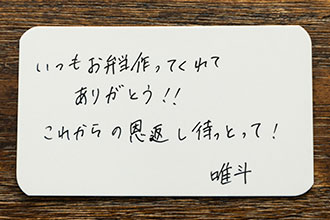 いつもお弁当作ってくれて
ありがとう!!
これからの恩返し待っとって!
唯斗